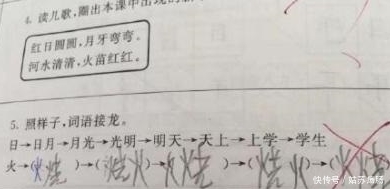 4. 读儿歌,圈出本课中出现的
红日圆圆,月牙弯弯。
河水清清,火苗红红。
5. 照样子,词语接龙。
日→日月→月光→光明→明天→天上→上学→学生
火→(火烧)→(烧火)→(火烧)→(烧火)→(火烧
快传号